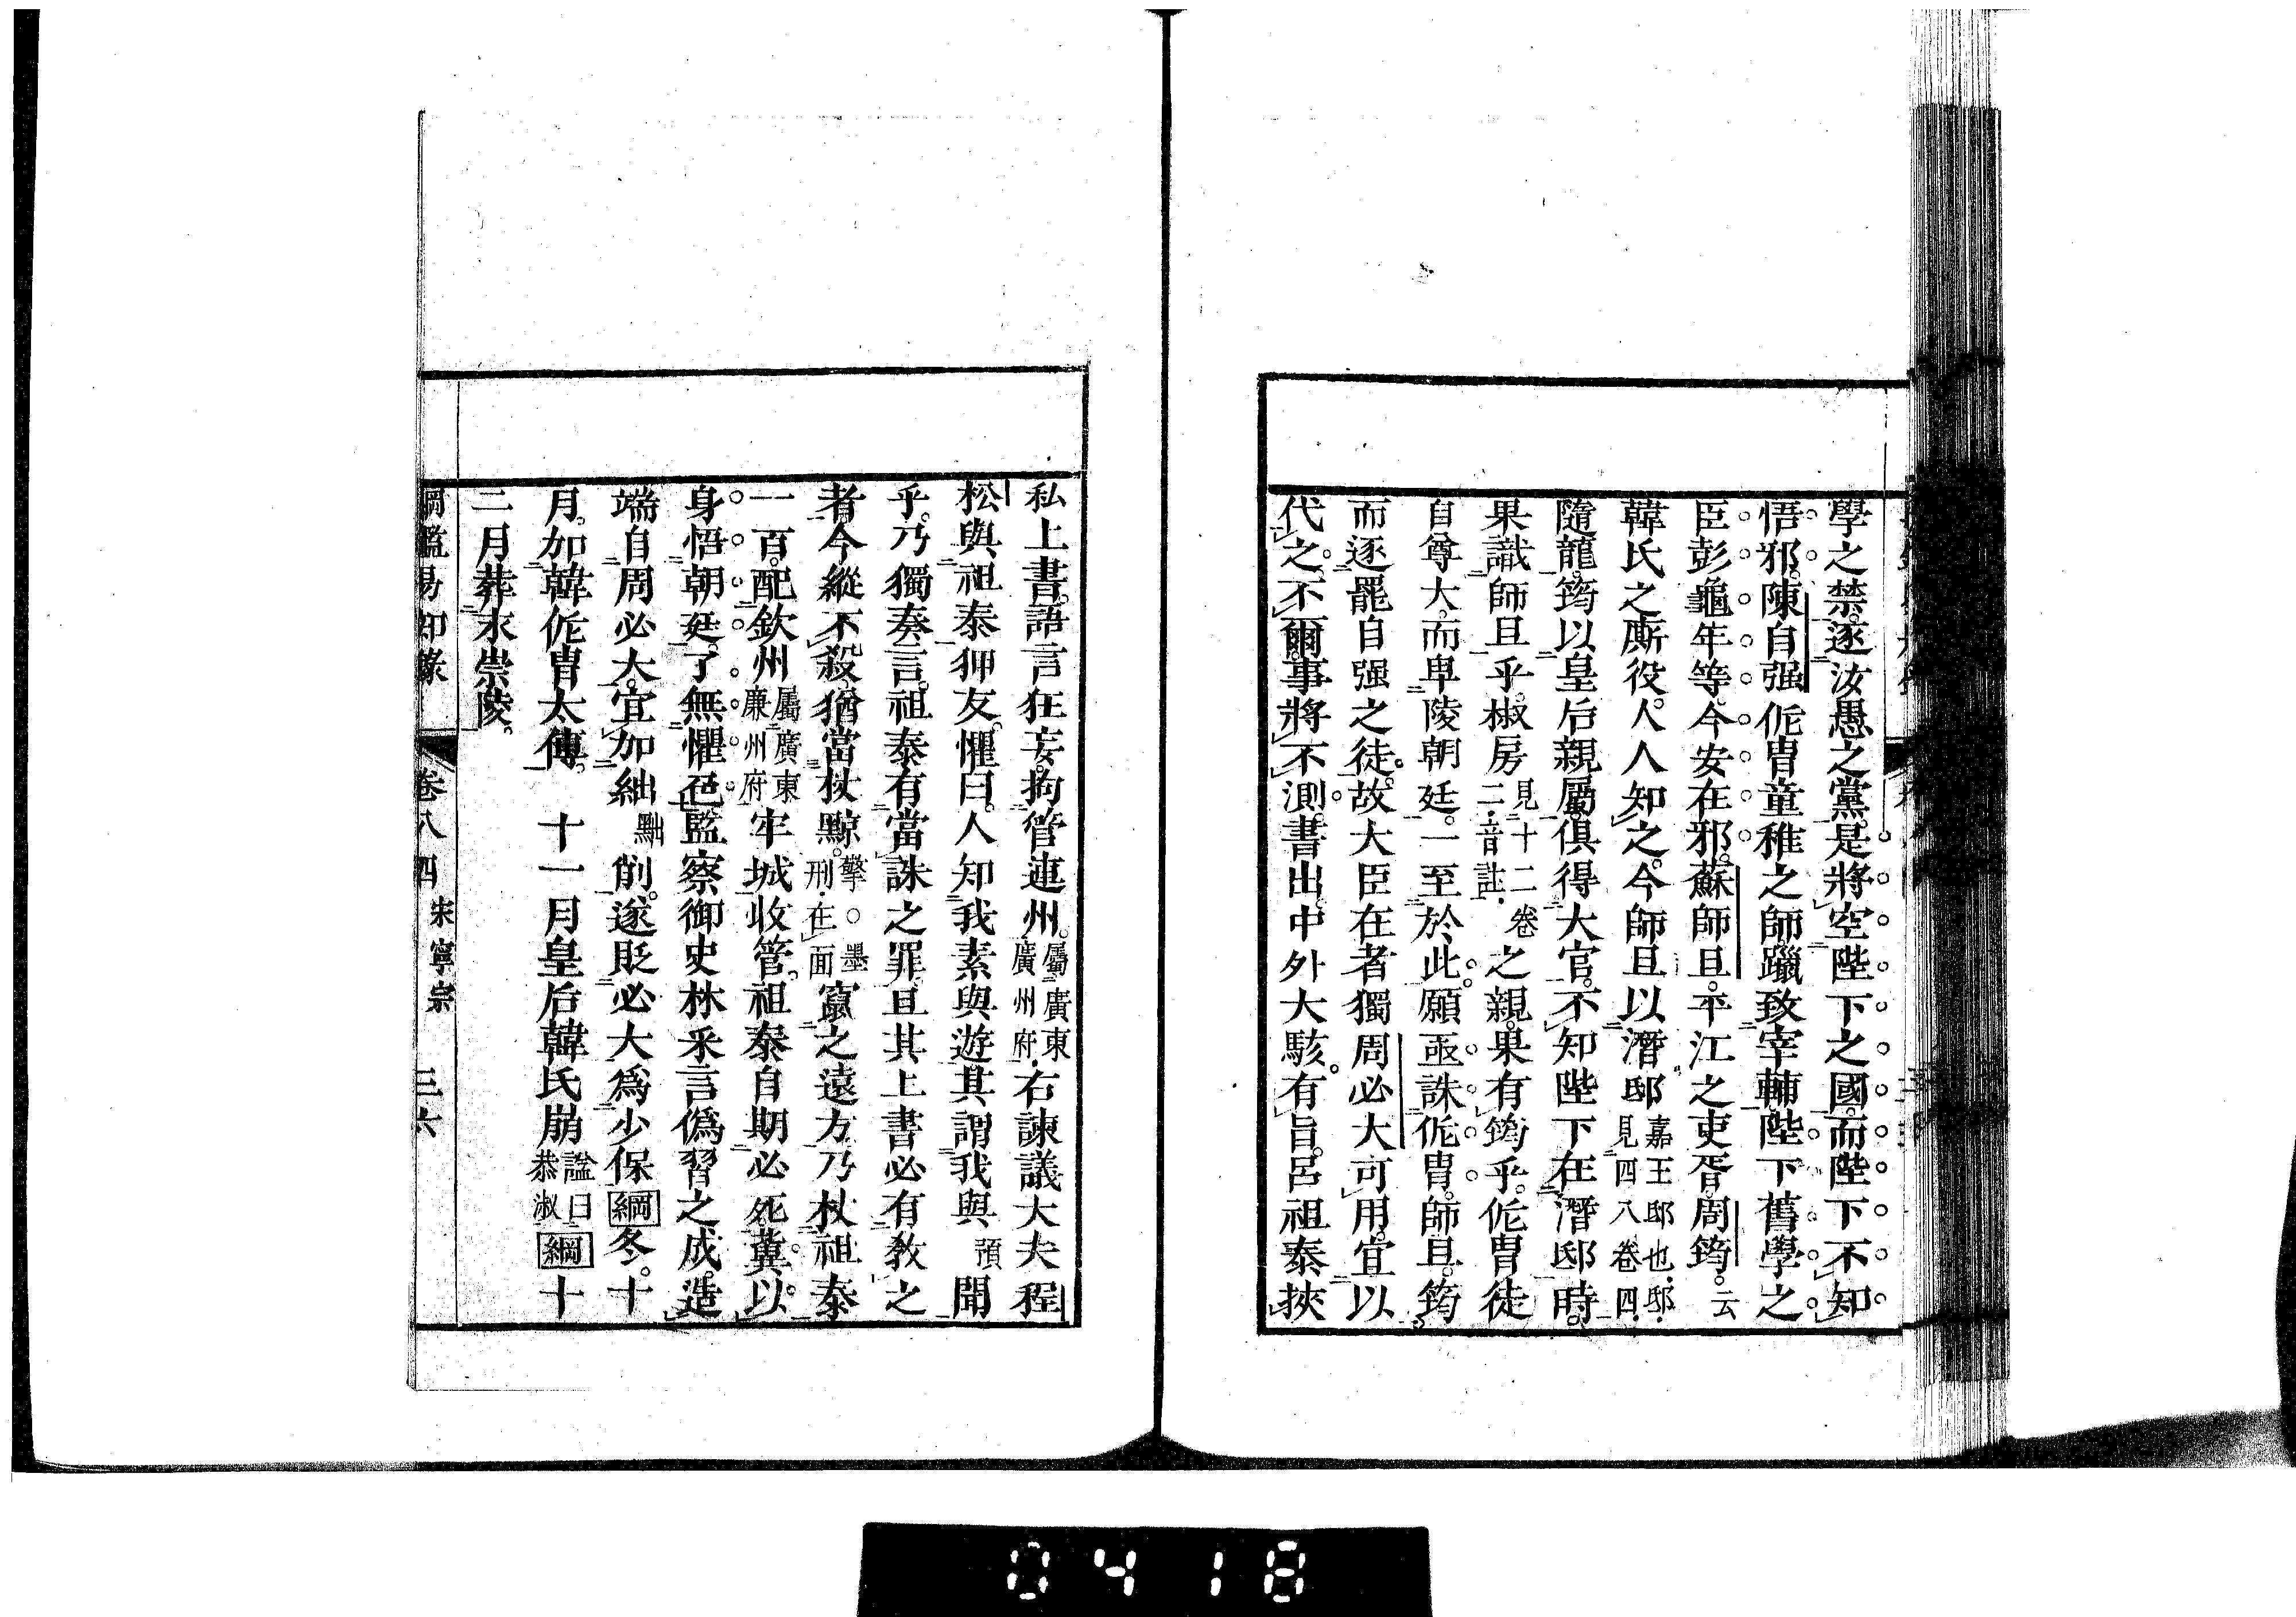 學之禁。逐汝愚之黨。是將空陛下之國。而陛下不知
悟邪。陳自强侂冑童稚之師。躐致宰輔。陛下舊學之
臣。彭龜年等。今安在邪。蘇師旦。平江之吏胥。周筠。云
韓氏之廝役。人人知之。今師旦以潛邸嘉王邸也。邸。見四八卷四。
隨龍。筠以皇后親屬。俱得大官。不知陛下在潛邸時。
果識師旦乎。椒房見十二卷二。音註。之親。果有筠乎。侂冑徒
自尊大。而卑陵朝廷。一至於此。願亟誅侂冑。師旦。筠。
而逐罷自强之徒。故大臣在者獨周必大可用。宜以
代之。不爾。事將不測。書出。中外大駭。有旨。呂祖泰挾
私上書。語言狂妄。拘管連州。屬廣東廣州府。右諫議大夫程
松與祖泰狎友。懼曰。人知我素與遊。其謂我與預聞
乎。乃獨奏言。祖泰有當誅之罪。且其上書必有教之
者。今縱不殺。猶當杖黥擎。墨刑在面。竄之遠方。乃杖祖泰
一百。配欽州屬廣東廉州府牢城收管。祖泰自期必死。冀以
身悟朝廷。了無懼色。監察御史林釆言僞習之成。造
端自周必大。宜加絀黜削。遂貶必大爲少保。綱冬。十
月。加韓侂冑太傅。十一月皇后韓氏崩諡曰恭淑。綱十
二月葬永崇陵。
綱鑑易知錄 卷八四 宋寧宗 三六
0418